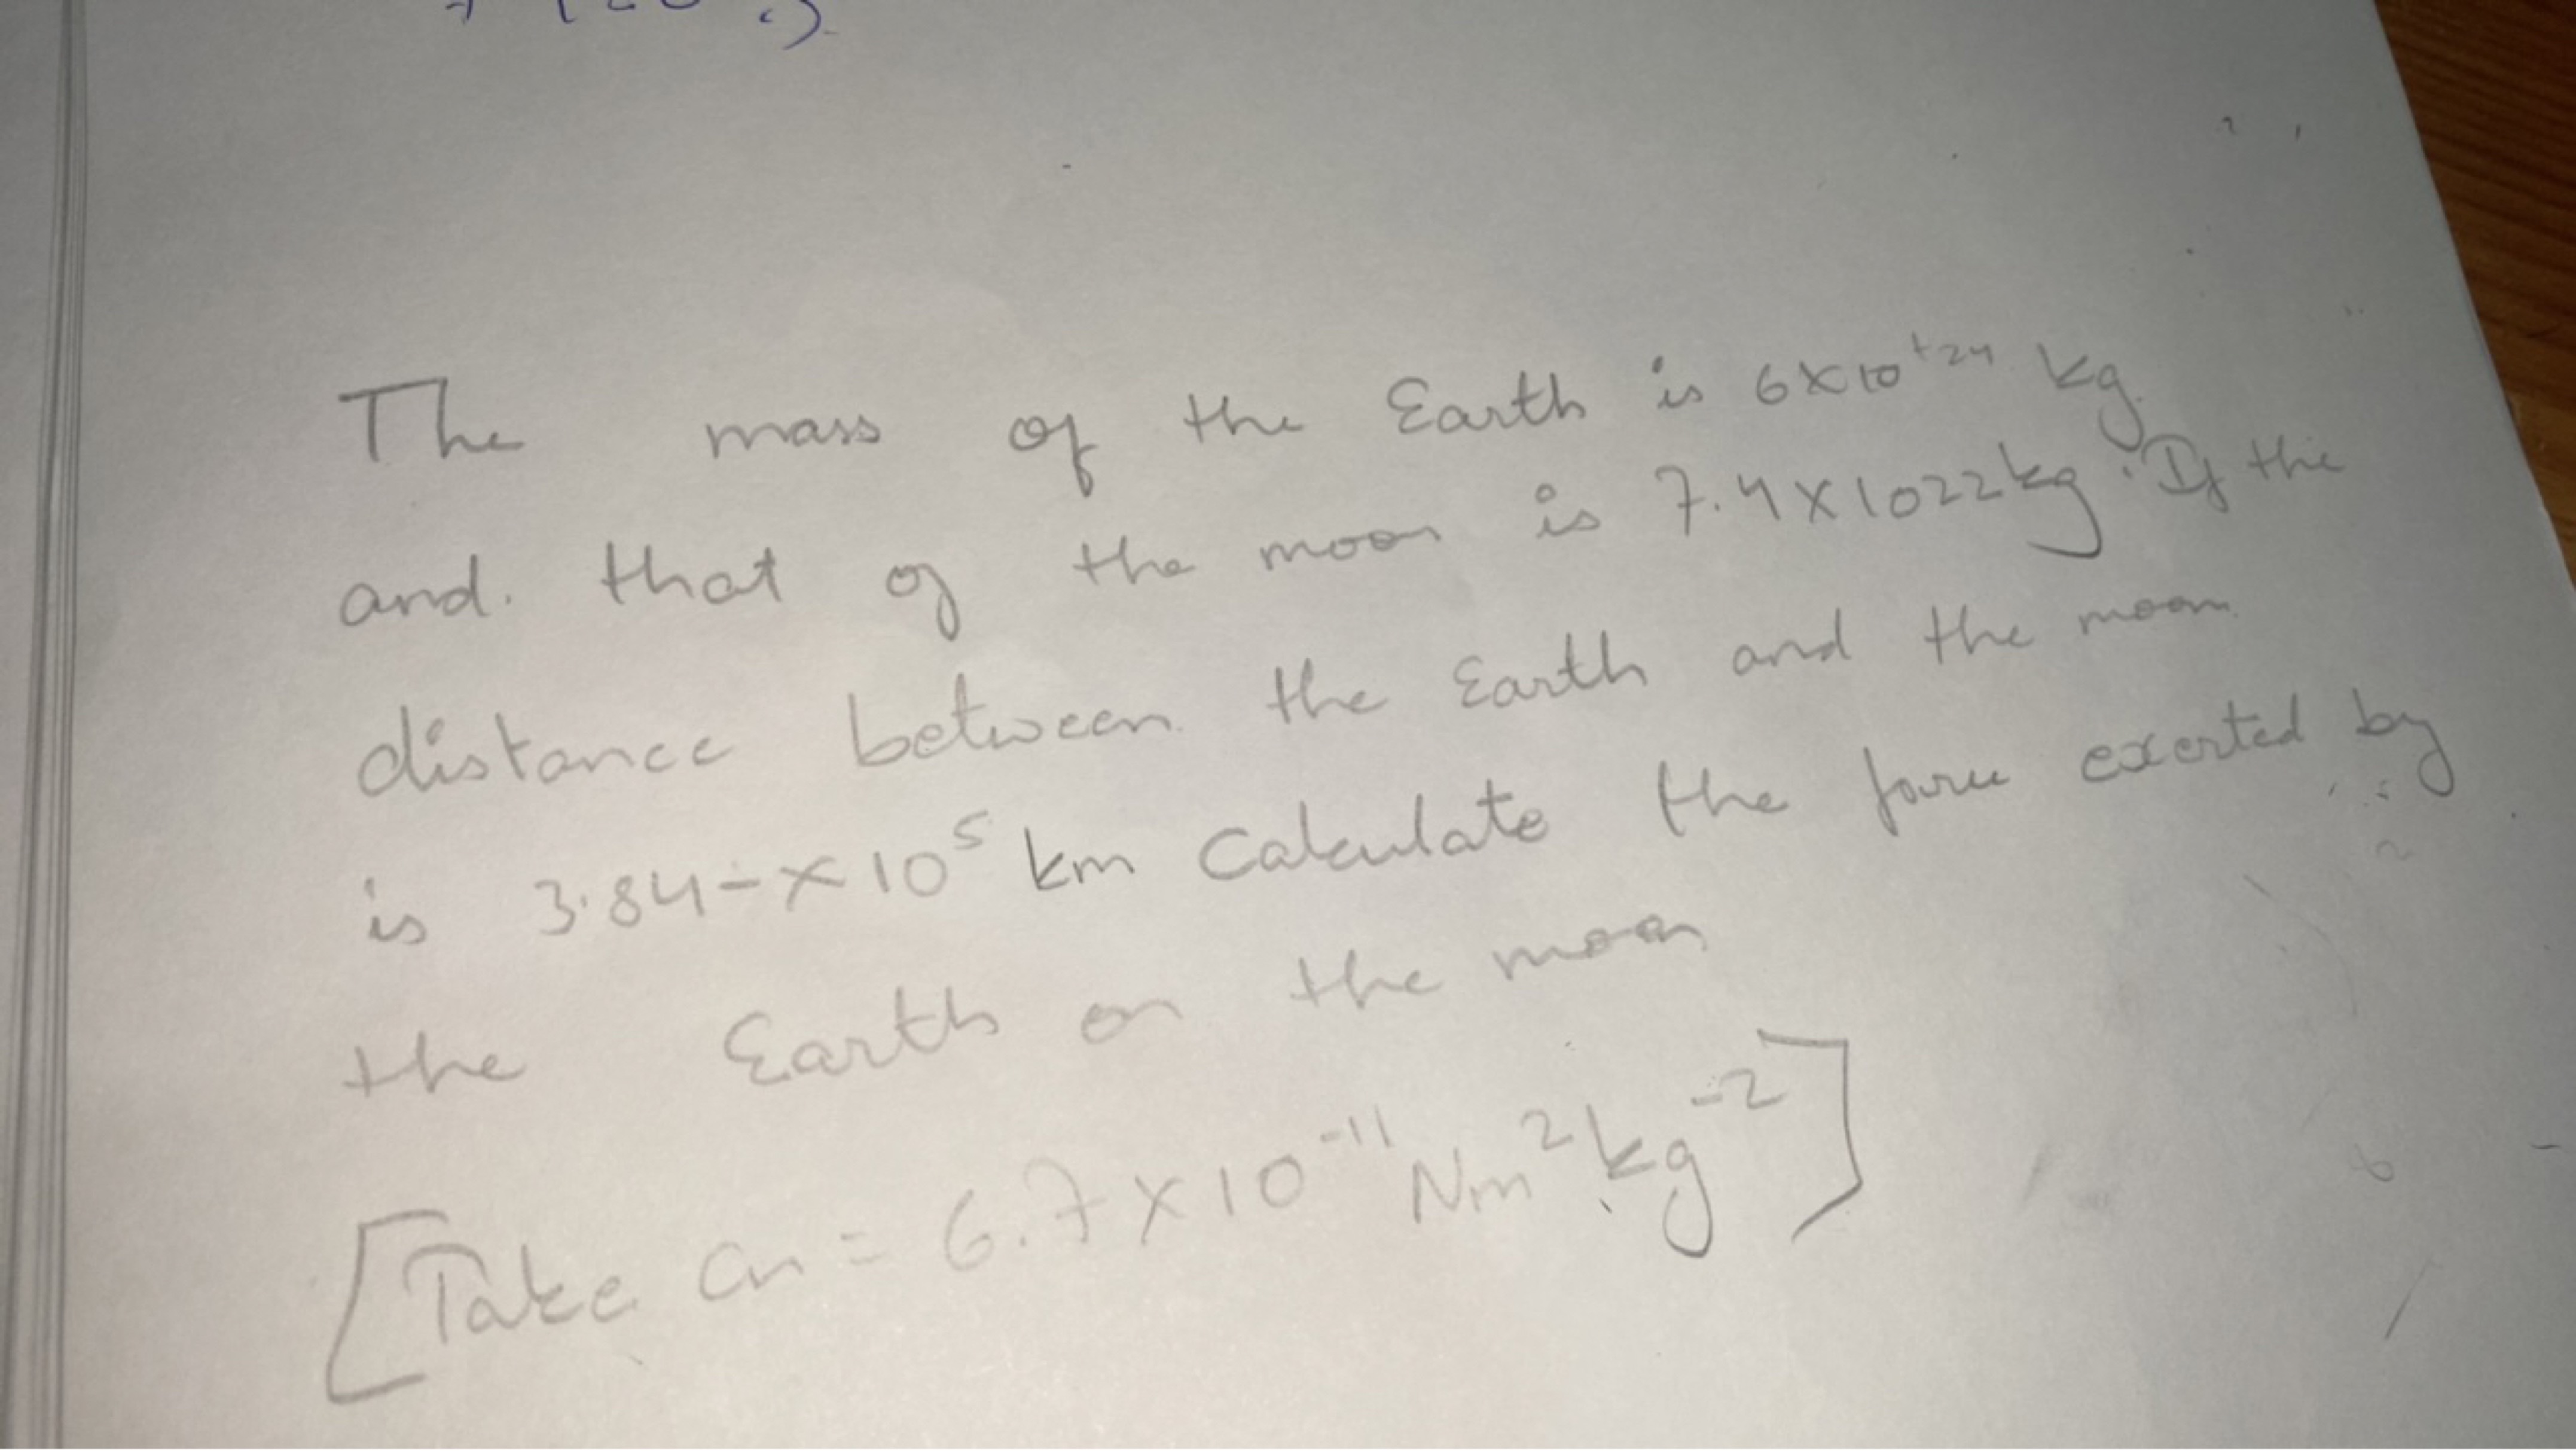 The mass of the Earth is 6×10⁺²⁴ kg
and. that of the moon is 7.4×1022kg. If the
distance between the Earth and the moon
is 3.84-×10⁵ km Calculate the force exerted by
the Earth on the moon
[Take G = 6.7×10⁻¹¹ Nm²kg⁻²]